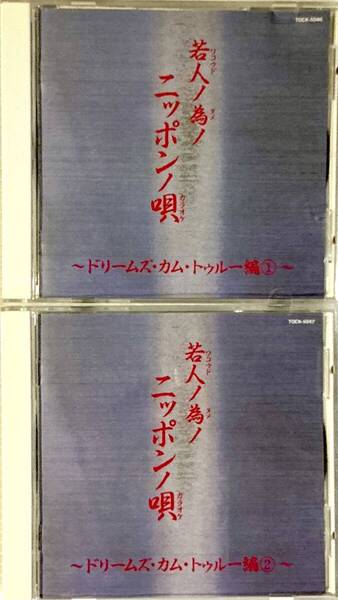 TOCK-5046
若人ノ為ノ
ワコウド
タメ
ニッポンノ唄
カラオケ
～ドリームズ・カム・トゥルー編①～
TOCK-5047
若人ノ為ノ
ワコウド
タメ
ニッポンノ唄
カラオケ
～ドリームズ・カム・トゥルー編②～